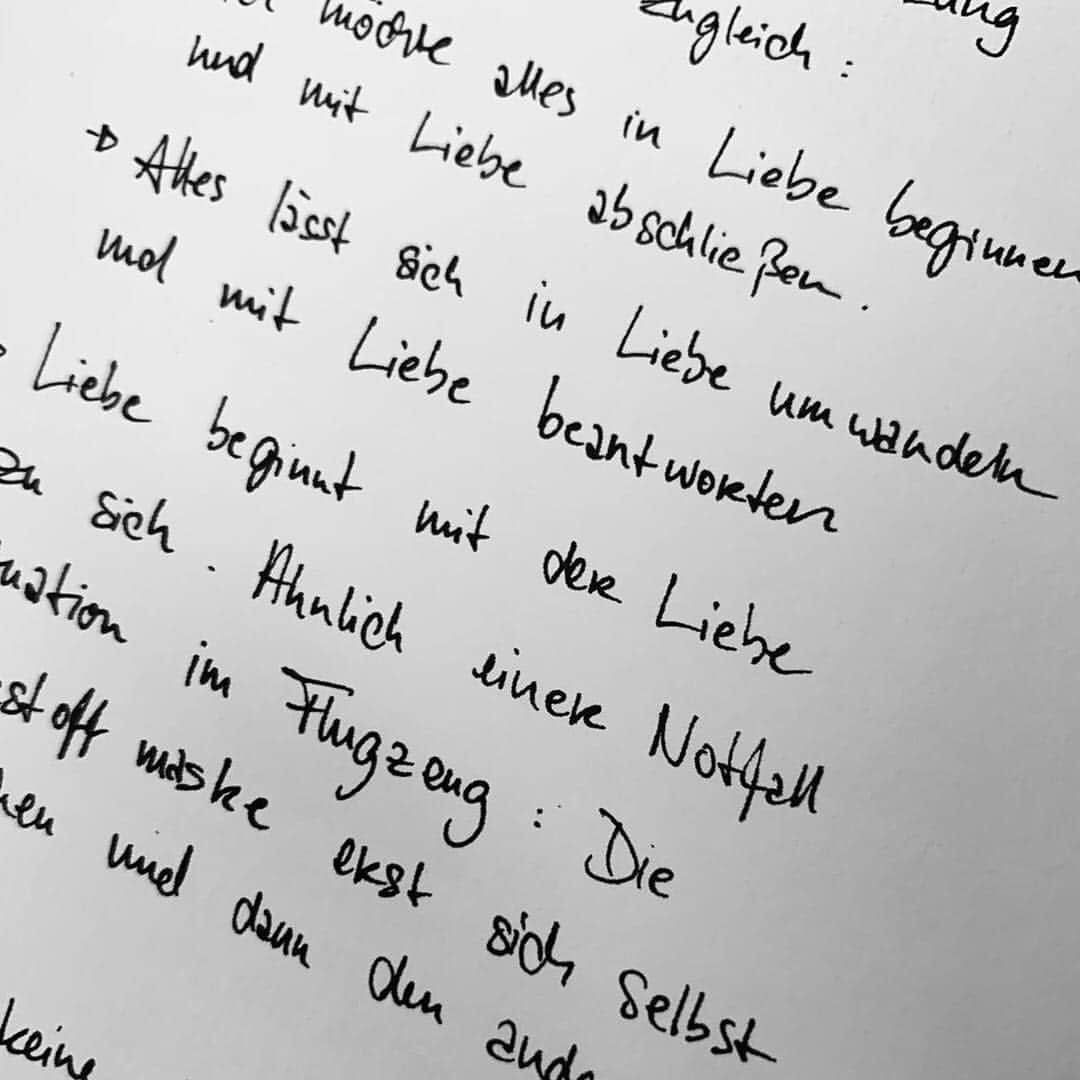 zugleich:
möchte alles in Liebe beginnen
und mit Liebe abschließen.
→ Alles lässt sich in Liebe umwandeln
und mit Liebe beantworten
Liebe beginnt mit der Liebe
zu sich. Ähnlich einer Notfall
tuation im Flugzeug: Die
stoff maske erst sich selbst
hen und dann den ande
keine